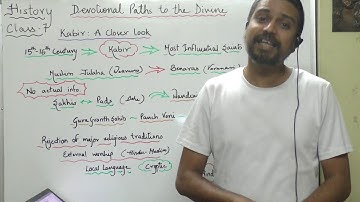 History
Class-7
Devotional Paths to the Divine
Kabir: A Closer Look
15th-16th Century → Kabir → Most Influential Saints
Muslim Julaha (Weavers) → Banaras (Varanasi)
No actual info.
Sakhis Pads
Guru Granth Sahib Panch Vani
Rejection of major religious traditions
External worship (Hindu-Muslim)
Local Language Cryptic